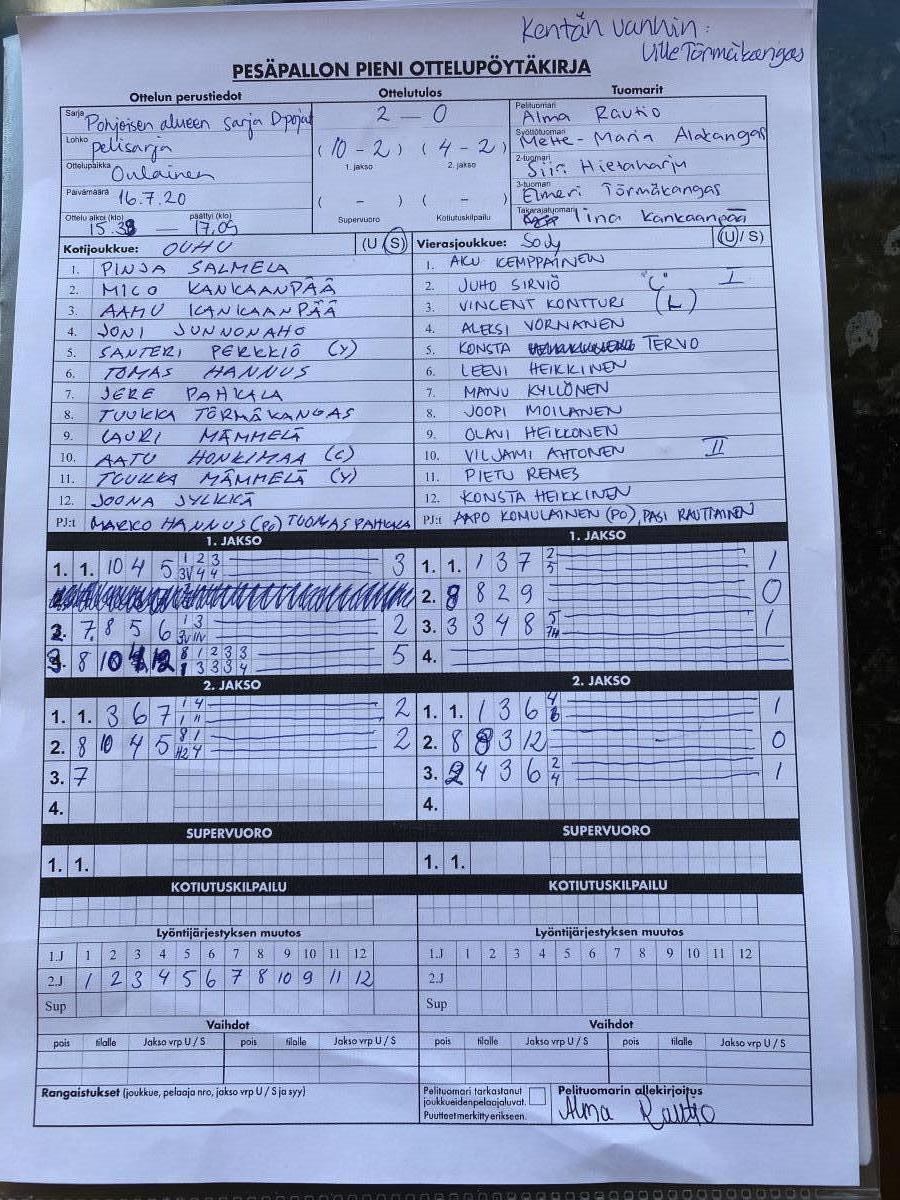 Kentän vanhin:
Ville Törmäkangas
PESÄPALLON PIENI OTTELUPÖYTÄKIRJA
Ottelun perustiedot
Ottelutulos
Tuomarit
Sarja Pohjoisen alueen sarja Dpojat
Lohko pelisarja
Ottelupaikka Oulainen
Päivämäärä 16.7.20
Ottelu alkoi (klo) päättyi (klo)
15.38 — 17.09
2 — 0
(10 - 2) (4 - 2)
1. jakso 2. jakso
( - ) ( - )
Supervuoro Kotiutuskilpailu
Pelituomari Alma Rautio
Syöttötuomari Mette-Maria Alakangas
2-tuomari Siiri Hietaharju
3-tuomari Elmeri Törmäkangas
Takarajatuomari Iina Kankaanpää
Kotijoukkue: OUHU (U / S)
1. PINJA SALMELA
2. MICO KANKAANPÄÄ
3. AAMU KANKAANPÄÄ
4. JONI JUNNONAHO
5. SANTERI PERKKIÖ (Y)
6. TOMAS HANNUS
7. JERE PAHKALA
8. TUUKKA TÖRMÄKANGAS
9. LAURI MÄMMELÄ
10. AATU HONKIMAA (C)
11. TOUKKA MÄMMELÄ (Y)
12. JOONA JYLKKÄ
PJ:t MARKO HANNUS (PO) TUOMAS PAHKALA
Vierasjoukkue: SoJy (U / S)
1. AKU KEMPPAINEN
2. JUHO SIRVIÖ "C" I
3. VINCENT KONTTURI (L)
4. ALEKSI VORNANEN
5. KONSTA TERVO
6. LEEVI HEIKKINEN
7. MANU KYLLÖNEN
8. JOOPI MOILANEN
9. OLAVI HEIKKONEN
10. VILJAMI AHTONEN II
11. PIETU REMES
12. KONSTA HEIKKINEN
PJ:t AAPO KOMULAINEN (PO), PASI RAUTIAINEN
1. JAKSO
1. 1. 10 4 5 1 2 3 3
3V 4 4
2. 7. 8 5 6 1 3 2
3V IIV
3. 8 10 12 8 1 2 3 3 5
1 3 3 3 4
1. JAKSO
1. 1. 1 3 7 2 1
5
2. 8 8 2 9 0
3. 3 3 4 8 5 1
7H
4.
2. JAKSO
1. 1. 3 6 7 1 4 2
1 11
2. 8 10 4 5 8 1 2
H2 4
3. 7
4.
2. JAKSO
1. 1. 1 3 6 4 1
2. 8 8 3 12 0
3. 2 4 3 6 2 1
4
4.
SUPERVUORO
1. 1.
SUPERVUORO
1. 1.
KOTIUTUSKILPAILU
KOTIUTUSKILPAILU
Lyöntijärjestyksen muutos
1.J 1 2 3 4 5 6 7 8 9 10 11 12
2.J 1 2 3 4 5 6 7 8 10 9 11 12
Sup
Lyöntijärjestyksen muutos
1.J 1 2 3 4 5 6 7 8 9 10 11 12
2.J
Sup
Vaihdot
pois tilalle Jakso vrp U / S pois tilalle Jakso vrp U / S
Vaihdot
pois tilalle Jakso vrp U / S pois tilalle Jakso vrp U / S
Rangaistukset (joukkue, pelaaja nro, jakso vrp U / S ja syy)
Pelituomari tarkastanut
joukkueidenpelaajaluvat.
Puutteet merkitty erikseen.
Pelituomarin allekirjoitus
Alma Rautio